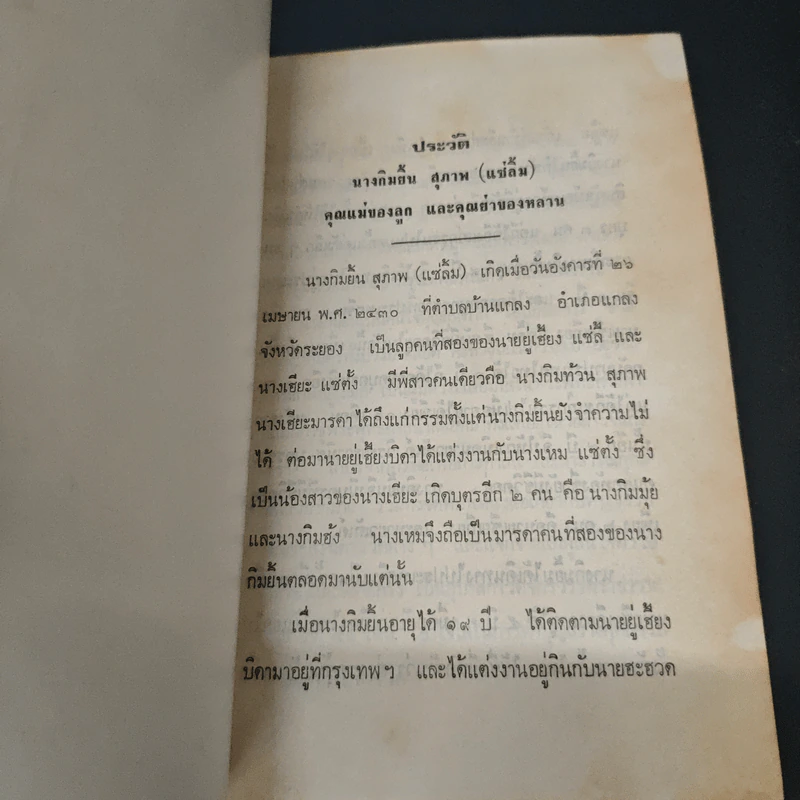 ประวัติ
นางกิมยิ้น สุภาพ (แซ่ลิ้ม)
คุณแม่ของลูก และคุณย่าของหลาน
นางกิมยิ้น สุภาพ (แซ่ลิ้ม) เกิดเมื่อวันอังคารที่ ๒๖
เมษายน พ.ศ. ๒๔๓๐ ที่ตำบลบ้านแกลง อำเภอแกลง
จังหวัดระยอง เป็นลูกคนที่สองของนายยู่เฮี้ยง แซ่ลี้ และ
นางเฮียะ แซ่ตั้ง มีพี่สาวคนเดียวคือ นางกิมท้วน สุภาพ
นางเฮียะมารดาได้ถึงแก่กรรมตั้งแต่นางกิมยิ้นยังจำความไม่
ได้ ต่อมานายยู่เฮี้ยงบิดาได้แต่งงานกับนางเหม แซ่ตั้ง ซึ่ง
เป็นน้องสาวของนางเฮียะ เกิดบุตรอีก ๒ คน คือ นางกิมมุ้ย
และนางกิมฮ้ง นางเหมจึงถือเป็นมารดาคนที่สองของนาง
กิมยิ้นตลอดมานับแต่นั้น
เมื่อนางกิมยิ้นอายุได้ ๑๙ ปี ได้ติดตามนายยู่เฮี้ยง
บิดามาอยู่ที่กรุงเทพฯ และได้แต่งงานอยู่กินกับนายฮะฮวด